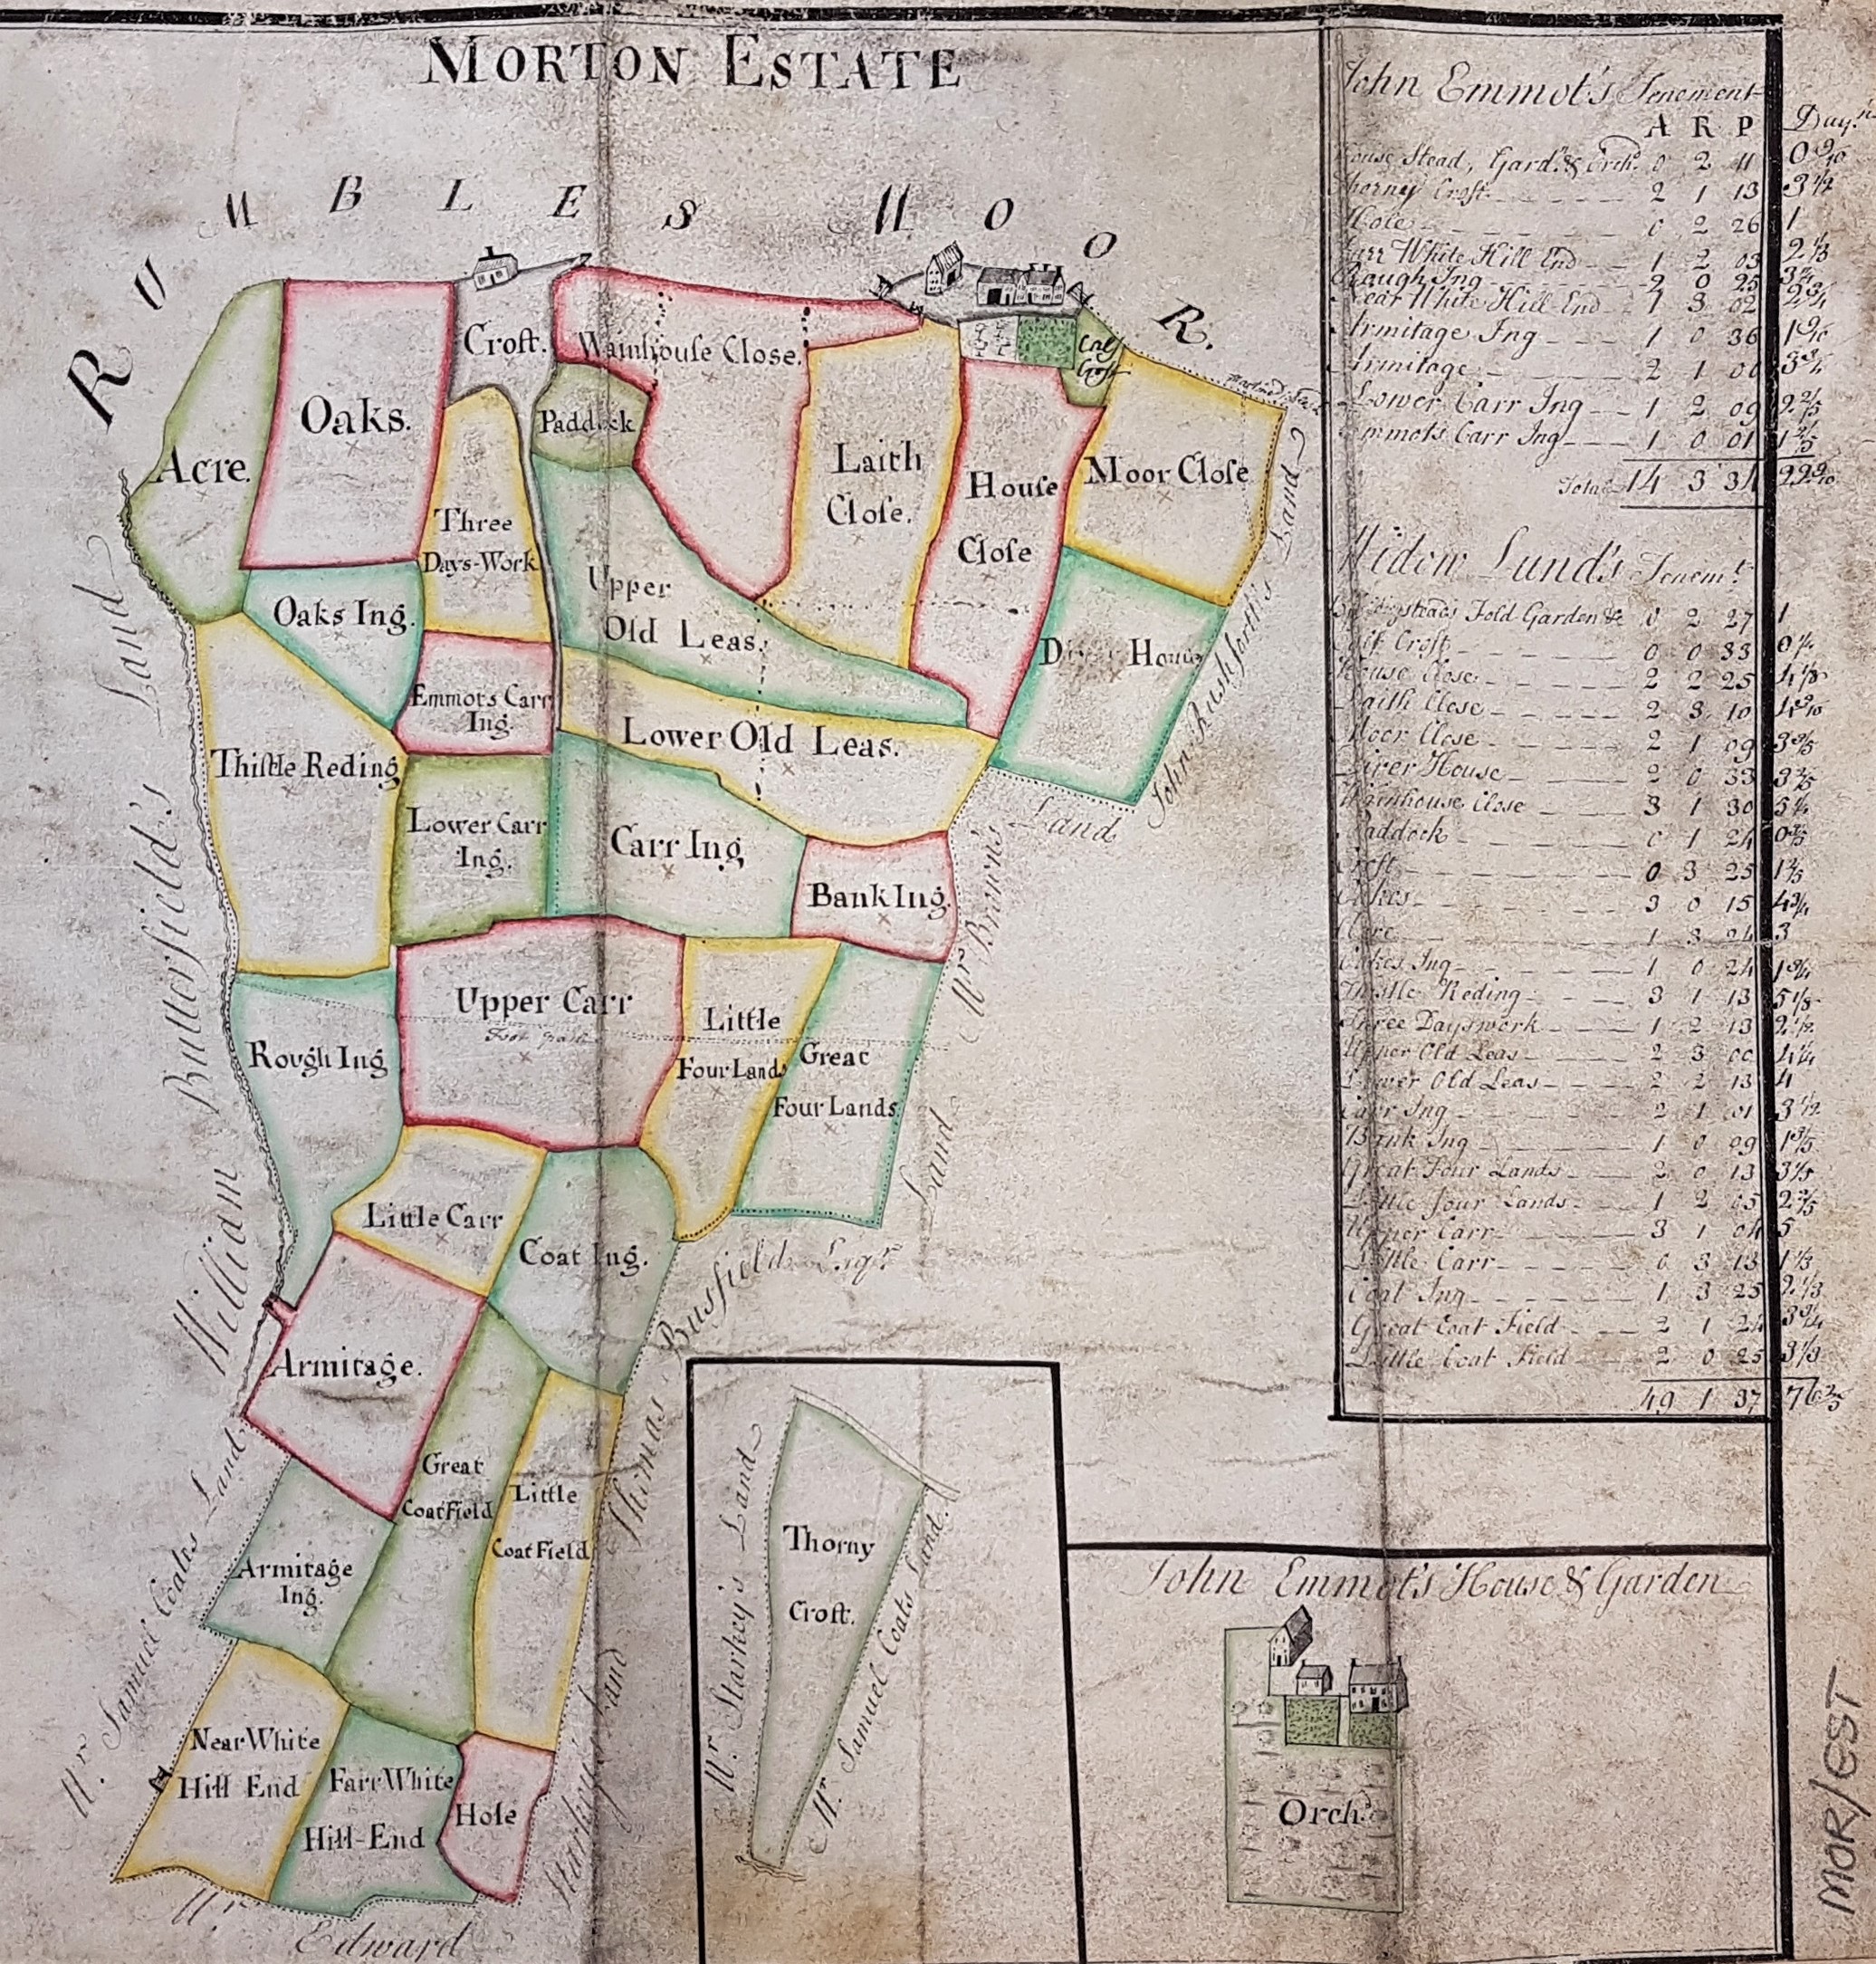 MORTON ESTATE
RUMBLES MOOR.
Croft.
Wainhouse Close.
Calf
Croft
Oaks.
Paddock
Acre.
Laith
Close.
House
Close
Moor Close
Three
Days-Work
Upper
Old Leas.
Oaks Ing.
House
Emmots Carr
Ing.
Lower Old Leas.
Thistle Reding
Lower Carr
Ing.
Carr Ing
Bank Ing.
Upper Carr
Foot path
Little
Four Lands
Great
Four Lands.
Rough Ing
Little Carr
Coat Ing.
Armitage.
Great
Coat Field
Little
Coat Field
Armitage
Ing.
Near White
Hill End
Farr White
Hill-End
Hole
William Butterfield's Land
Mr. Samuel Coates Land
Mr. Edward Starkey's Land
Thomas Busfield Esqr. Land
Mr Brown's Land
John Rushforth's Land
Thorny
Croft.
Mr. Starkey's Land
Mr. Samuel Coats Land.
John Emmot's House & Garden
Orchd.
John Emmot's Tenement
A R P Days
House Stead, Gardn. & Orchd. 0 2 11 0 9/10
Thorney Croft 2 1 13 3 1/2
Hole 0 2 26 1
Farr White Hill End 1 2 03 2 1/3
Rough Ing 2 0 25
Near White Hill End 1 3 02 2 3/4
Armitage Ing 1 0 36 1 9/10
Armitage 2 1 00 3 3/4
Lower Carr Ing 1 2 09 2 2/5
Emmots Carr Ing 1 0 01 1 2/5
Total 14 3 34 22 9/10
Widow Lund's Tenemt.
Fold Garden &c 0 2 27 1
Calf Croft 0 0 33 0 1/4
House Close 2 2 25 4 1/8
Laith Close 2 3 10
Moor Close 2 1 09 3 3/5
House 2 0 33 3 2/5
Wainhouse Close 3 1 30 5 1/4
Paddock 0 1 24
Croft 0 3 25 1 2/5
Oakes 3 0 15 4 3/4
Acre 1 3 24 3
Oakes Ing 1 0 24 1 3/4
Thistle Reding 3 1 13 5 1/8
Three Dayswork 1 2 13 2 1/2
Upper Old Leas 2 3 00 4 1/4
Lower Old Leas 2 2 13 4
Carr Ing 2 1 01 3 1/2
Bank Ing 1 0 09 1 3/5
Great Four Lands 2 0 13 3 1/5
Little four Lands 1 2 05 2 2/5
Upper Carr 3 1 04 5
Little Carr 0 3 13 1 1/3
Coat Ing 1 3 25 2 1/3
Great Coat Field 2 1 24 3 3/4
Little Coat Field 2 0 25 3 1/3
49 1 37 76 2/5
MOR/EST